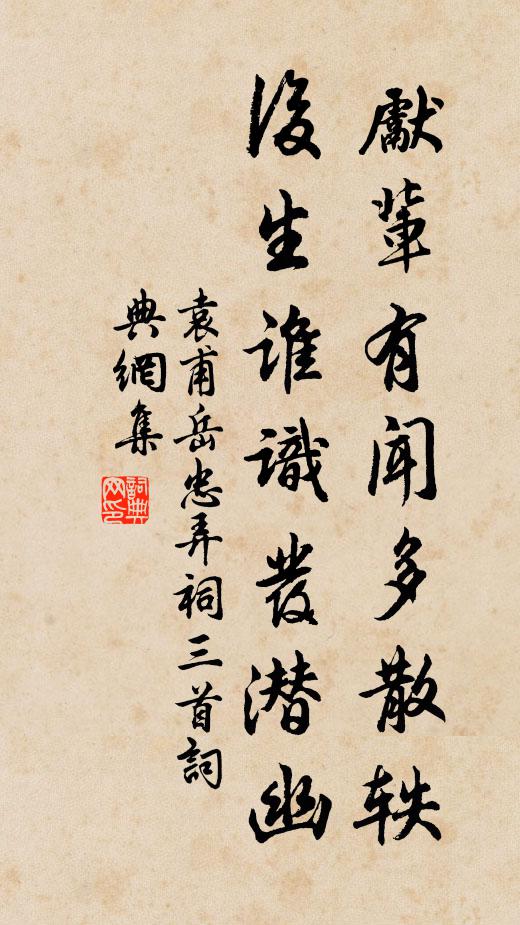 獻輩有聞多散轶
後生誰識發潜幽
袁甫岳忠弄祠三首詞
典網集
詞典網印